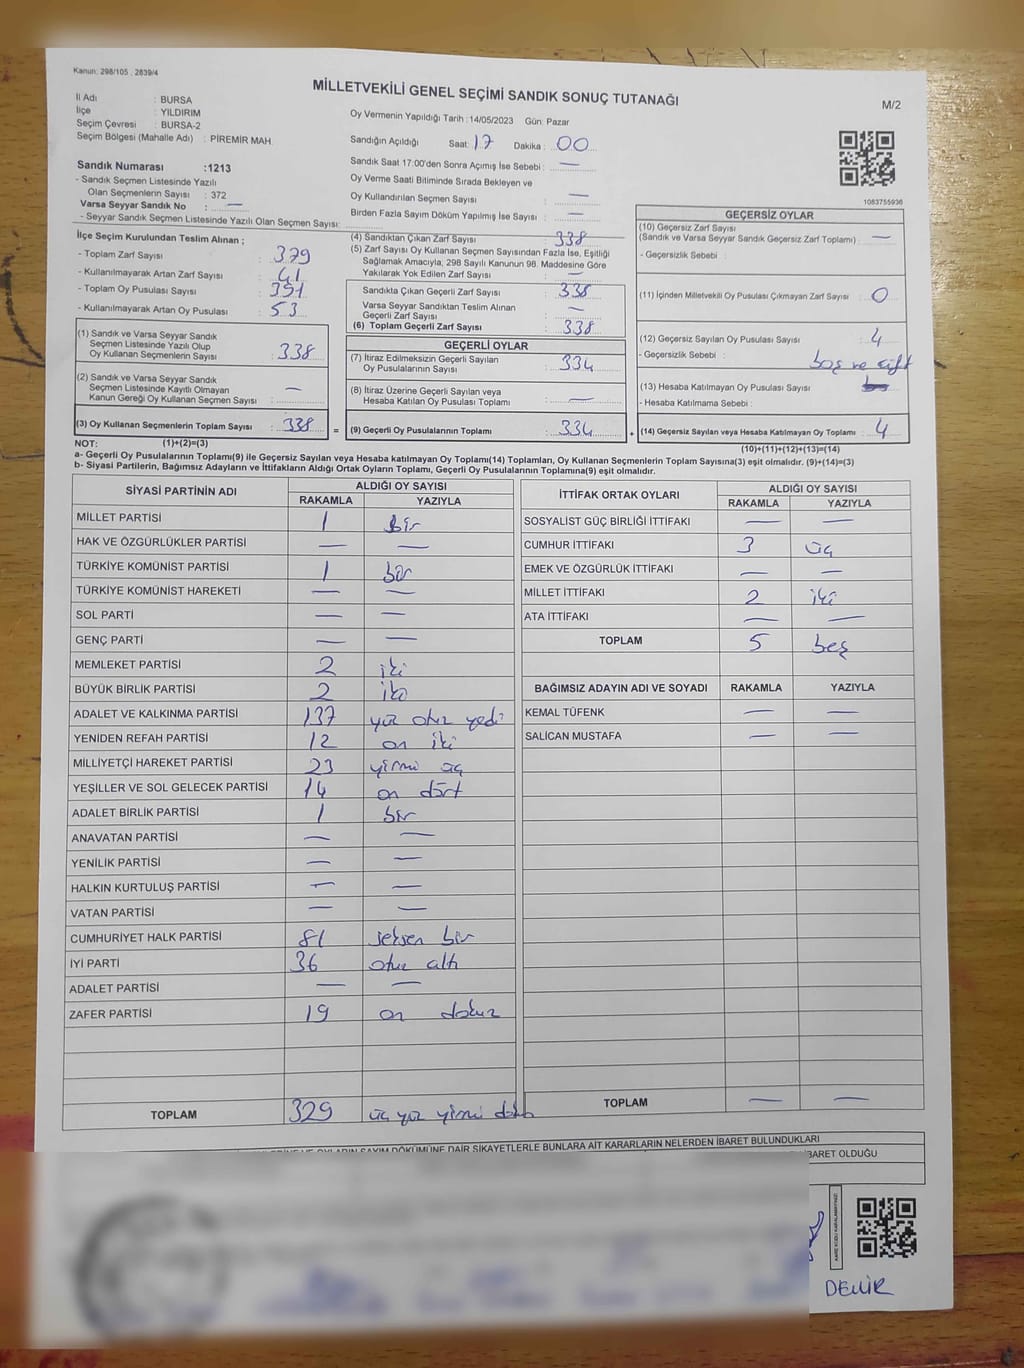 Kanun: 298/105 , 2839/4
MİLLETVEKİLİ GENEL SEÇİMİ SANDIK SONUÇ TUTANAĞI
M/2
İl Adı : BURSA
İlçe : YILDIRIM
Seçim Çevresi : BURSA-2
Seçim Bölgesi (Mahalle Adı) : PİREMİR MAH.
Oy Vermenin Yapıldığı Tarih : 14/05/2023 Gün: Pazar
Sandığın Açıldığı Saat: 17 Dakika : 00
Sandık Saat 17:00'den Sonra Açımış İse Sebebi : —
Oy Verme Saati Bitiminde Sırada Bekleyen ve
Oy Kullandırılan Seçmen Sayısı : —
Birden Fazla Sayım Döküm Yapılmış İse Sayısı : —
Sandık Numarası :1213
- Sandık Seçmen Listesinde Yazılı
Olan Seçmenlerin Sayısı : 372
Varsa Seyyar Sandık No : —
- Seyyar Sandık Seçmen Listesinde Yazılı Olan Seçmen Sayısı:
1083755936
İlçe Seçim Kurulundan Teslim Alınan ;
- Toplam Zarf Sayısı : 379
- Kullanılmayarak Artan Zarf Sayısı : 41
- Toplam Oy Pusulası Sayısı : 391
- Kullanılmayarak Artan Oy Pusulası : 53
(1) Sandık ve Varsa Seyyar Sandık
Seçmen Listesinde Yazılı Olup
Oy Kullanan Seçmenlerin Sayısı : 338
(2) Sandık ve Varsa Seyyar Sandık
Seçmen Listesinde Kayıtlı Olmayan
Kanun Gereği Oy Kullanan Seçmen Sayısı : —
(3) Oy Kullanan Seçmenlerin Toplam Sayısı : 338 =
(4) Sandıktan Çıkan Zarf Sayısı : 338
(5) Zarf Sayısı Oy Kullanan Seçmen Sayısından Fazla İse, Eşitliği
Sağlamak Amacıyla; 298 Sayılı Kanunun 98. Maddesine Göre
Yakılarak Yok Edilen Zarf Sayısı : —
Sandıkta Çıkan Geçerli Zarf Sayısı : 338
Varsa Seyyar Sandıktan Teslim Alınan
Geçerli Zarf Sayısı : —
(6) Toplam Geçerli Zarf Sayısı : 338
GEÇERLİ OYLAR
(7) İtiraz Edilmeksizin Geçerli Sayılan
Oy Pusulalarının Sayısı : 334
(8) İtiraz Üzerine Geçerli Sayılan veya
Hesaba Katılan Oy Pusulası Toplamı : —
(9) Geçerli Oy Pusulalarının Toplamı : 334 +
GEÇERSİZ OYLAR
(10) Geçersiz Zarf Sayısı
(Sandık ve Varsa Seyyar Sandık Geçersiz Zarf Toplamı) : —
- Geçersizlik Sebebi :
(11) İçinden Milletvekili Oy Pusulası Çıkmayan Zarf Sayısı : 0
(12) Geçersiz Sayılan Oy Pusulası Sayısı : 4
- Geçersizlik Sebebi : boş ve çift
(13) Hesaba Katılmayan Oy Pusulası Sayısı :
- Hesaba Katılmama Sebebi :
(14) Geçersiz Sayılan veya Hesaba Katılmayan Oy Toplamı : 4
NOT: (1)+(2)=(3)
(10)+(11)+(12)+(13)=(14)
a- Geçerli Oy Pusulalarının Toplamı(9) ile Geçersiz Sayılan ve Hesaba katılmayan Oy Toplamı(14) Toplamları, Oy Kullanan Seçmenlerin Toplam Sayısına(3) eşit olmalıdır. (9)+(14)=(3)
b- Siyasi Partilerin, Bağımsız Adayların ve İttifakların Aldığı Ortak Oyların Toplamı, Geçerli Oy Pusulalarının Toplamına(9) eşit olmalıdır.
SİYASİ PARTİNİN ADI
ALDIĞI OY SAYISI
RAKAMLA YAZIYLA
MİLLET PARTİSİ 1 Bir
HAK VE ÖZGÜRLÜKLER PARTİSİ — —
TÜRKİYE KOMÜNİST PARTİSİ 1 bir
TÜRKİYE KOMÜNİST HAREKETİ — —
SOL PARTİ — —
GENÇ PARTİ — —
MEMLEKET PARTİSİ 2 iki
BÜYÜK BİRLİK PARTİSİ 2 iki
ADALET VE KALKINMA PARTİSİ 137 yüz otuz yedi
YENİDEN REFAH PARTİSİ 12 on iki
MİLLİYETÇİ HAREKET PARTİSİ 23 yirmi üç
YEŞİLLER VE SOL GELECEK PARTİSİ 14 on dört
ADALET BİRLİK PARTİSİ 1 bir
ANAVATAN PARTİSİ — —
YENİLİK PARTİSİ — —
HALKIN KURTULUŞ PARTİSİ — —
VATAN PARTİSİ — —
CUMHURİYET HALK PARTİSİ 81 seksen bir
İYİ PARTİ 36 otuz altı
ADALET PARTİSİ — —
ZAFER PARTİSİ 19 on dokuz
TOPLAM 329 üç yüz yirmi dokuz
İTTİFAK ORTAK OYLARI
ALDIĞI OY SAYISI
RAKAMLA YAZIYLA
SOSYALİST GÜÇ BİRLİĞİ İTTİFAKI — —
CUMHUR İTTİFAKI 3 üç
EMEK VE ÖZGÜRLÜK İTTİFAKI — —
MİLLET İTTİFAKI 2 iki
ATA İTTİFAKI — —
TOPLAM 5 beş
BAĞIMSIZ ADAYIN ADI VE SOYADI RAKAMLA YAZIYLA
KEMAL TÜFENK — —
SALİCAN MUSTAFA — —
TOPLAM — —
SAYIM DÖKÜMÜNE DAİR ŞİKAYETLERLE BUNLARA AİT KARARLARIN NELERDEN İBARET BULUNDUKLARI
İBARET OLDUĞU
KARE KODU KARALAMAYINIZ!
DEMİR